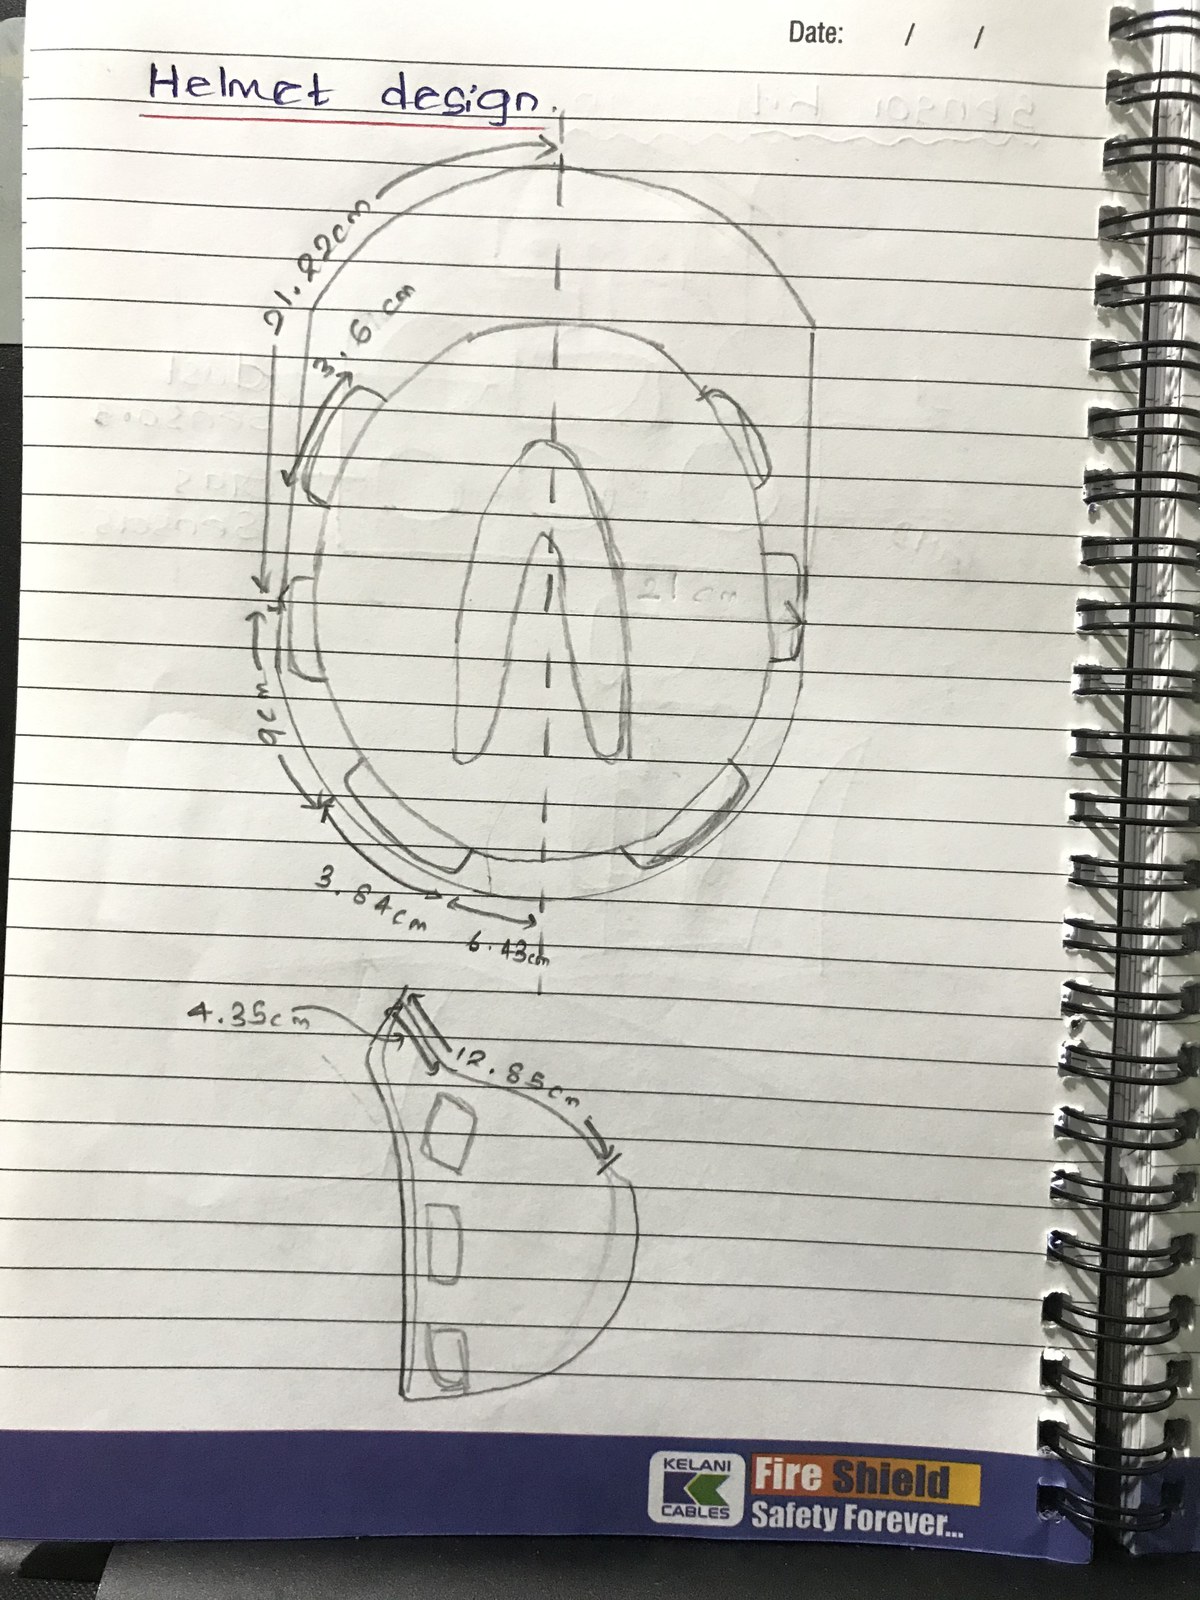 Date: / /
Helmet design.
21.22cm
3.6 cm
21 cm
9cm
3.84cm
6.43cm
4.35cm
12.85cm
KELANI
CABLES
Fire Shield
Safety Forever...